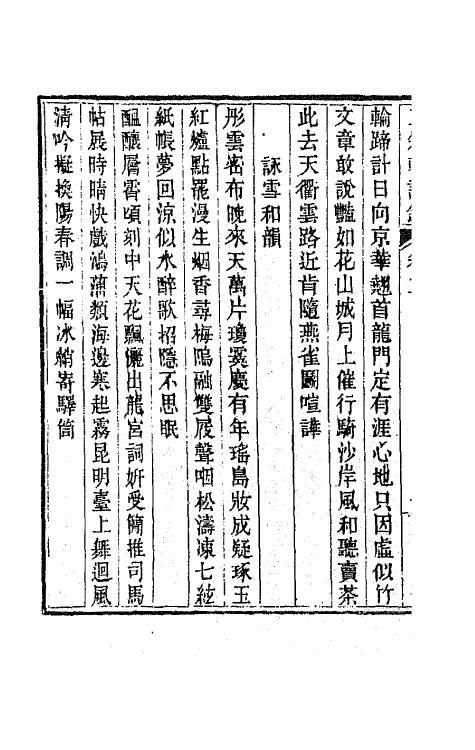 輪蹄計日向京華翹首龍門定有涯心地只因虛似竹
文章敢說豔如花山城月上催行騎沙岸風和聽賣茶
此去天衢雲路近肯隨燕雀鬭喧譁
詠雪和韻
彤雲密布晚來天萬片瓊葩慶有年瑤島妝成疑琢玉
紅爐點罷漫生烟香尋梅塢融雙屐聲咽松濤凍七絃
紙帳夢回涼似水醉歌招隱不思眠
醖釀層霄頃刻中天花飄灑出龍宮詞妍受簡推司馬
帖展時晴快戲鴻蒲類海邊寒起霧昆明臺上舞迴風
淸吟擬換陽春調一幅冰綃寄驛筒